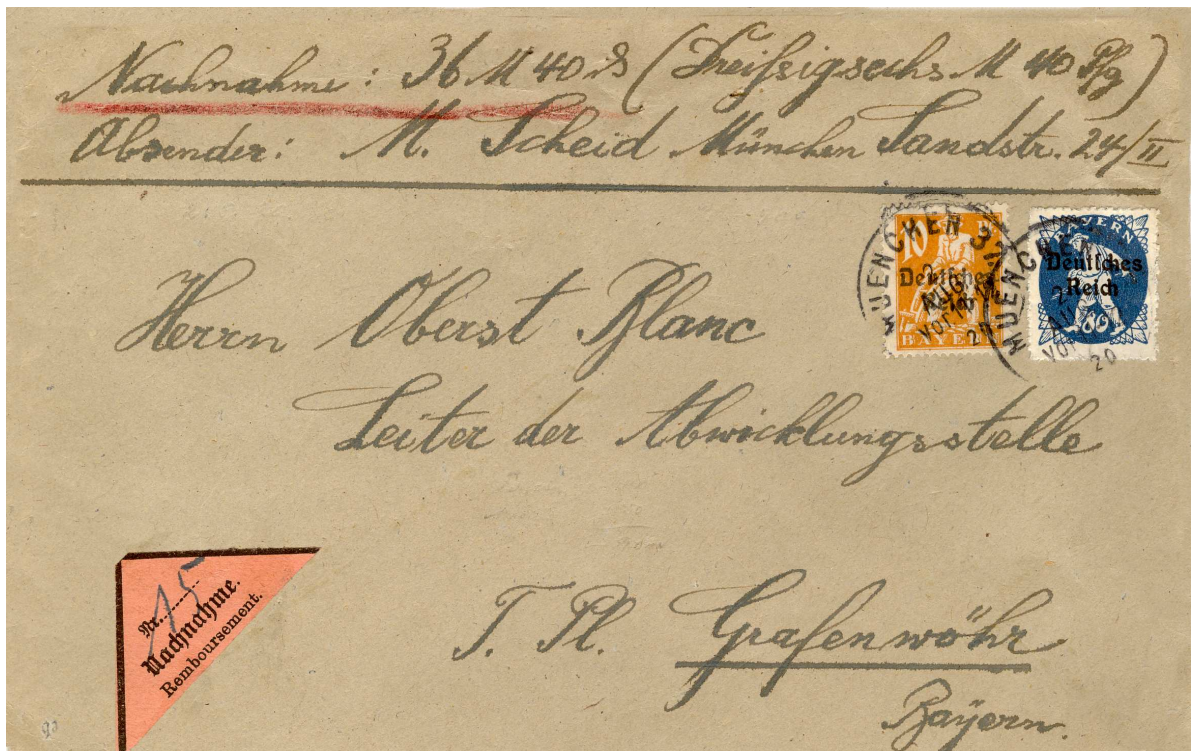 Nachnahme: 36 M 40 ₰ (Dreißigsechs M 40 Pfg)
Absender: M. Scheid München Sandstr. 24/II
10
Deutsches
Reich
BAYERN
MUENCHEN 37
AUG.
VOR
20
BAYERN
Deutsches
Reich
80
MUENCHEN
2
AU
VOR
20
Herrn Oberst Blanc
Leiter der Abwicklungsstelle
T. Pl. Grafenwöhr
Bayern.
Nr. 15
Nachnahme.
Remboursement.